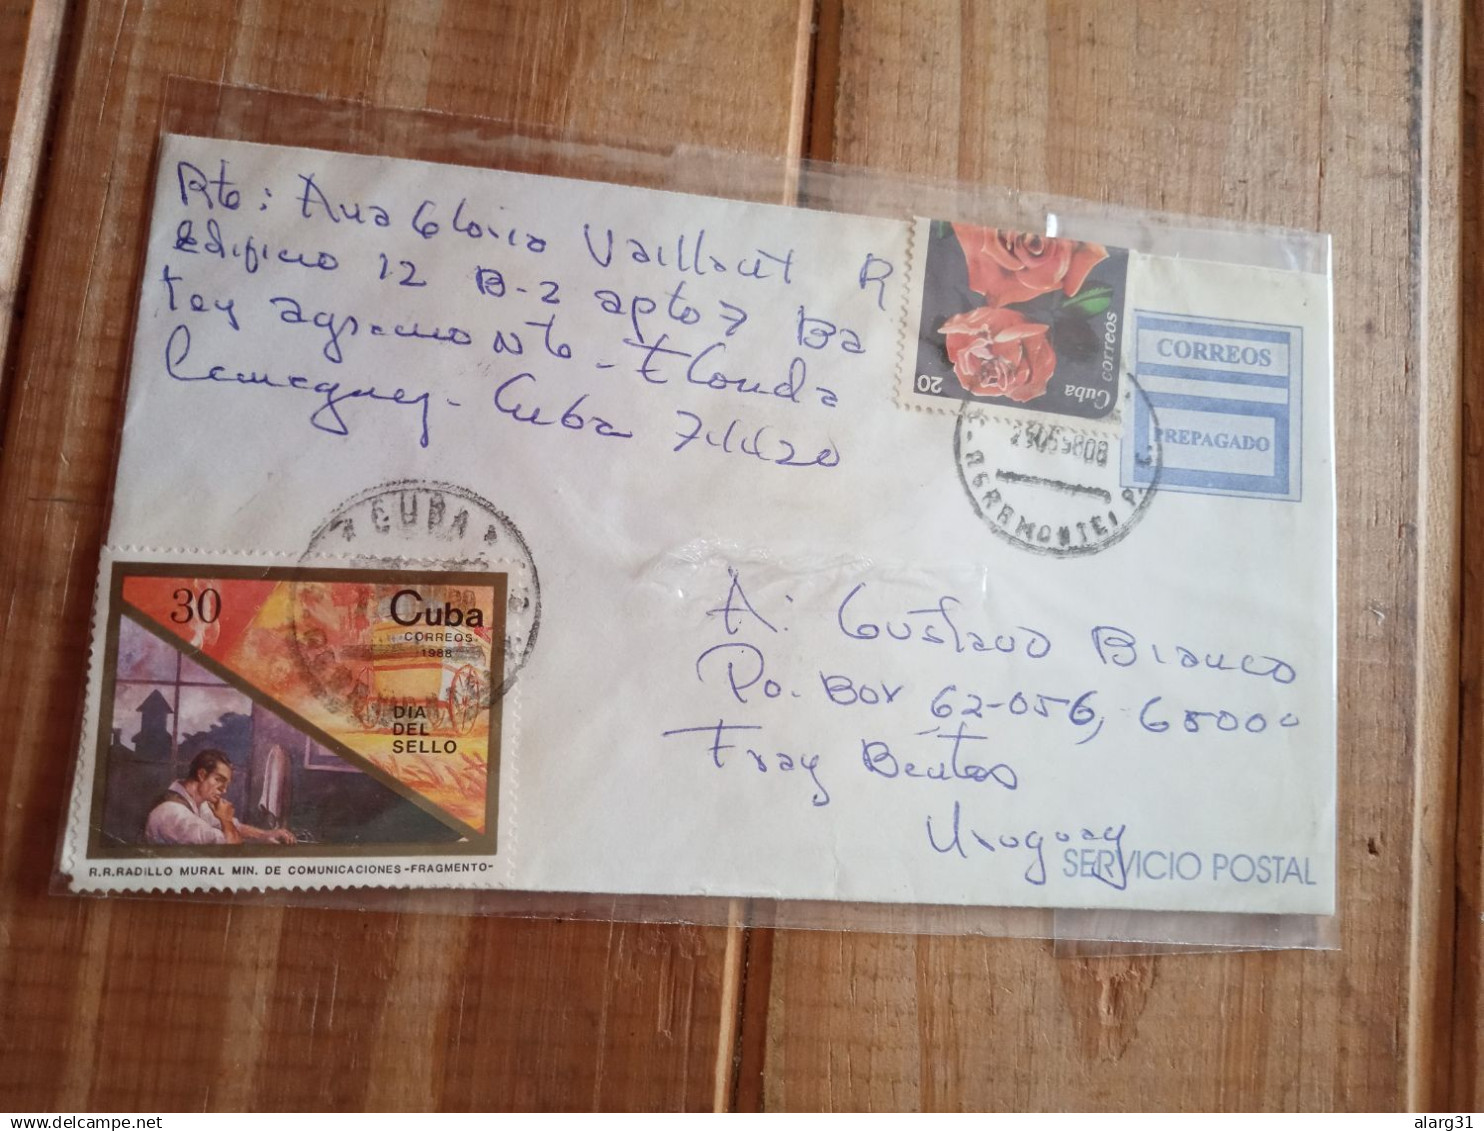 Rte: Ana Gloria Vaillant R
Edificio 12 B-2 apto 7 Ba
tey agramonte - Florida
Camaguey - Cuba 74420
20
Cuba correos
CORREOS
PREPAGADO
AGRAMONTE
* CUBA *
30
Cuba
CORREOS
1988
DIA
DEL
SELLO
R.R.RADILLO MURAL MIN. DE COMUNICACIONES -FRAGMENTO-
A: Gustavo Bianco
Po. Box 62-056, 65000
Fray Bentos
Uruguay
SERVICIO POSTAL
alarg31